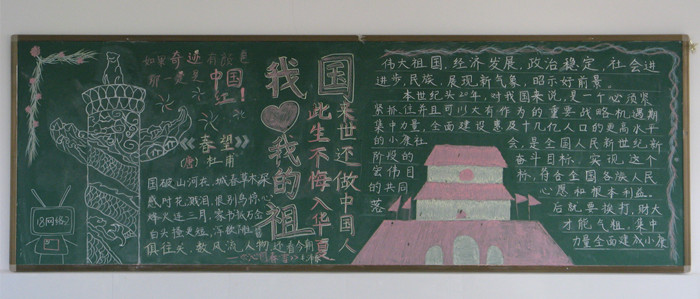 如果奇迹有颜色
那一定是
中国
红!
《春望》
(唐)杜甫
国破山河在,城春草木深
感时花溅泪,恨别鸟惊心
烽火连三月,家书抵万金
白头搔更短,浑欲胜簪
俱往矣,数风流人物,还看今朝
我❤我的祖国
此生不悔入华夏
来世还做中国人
伟大祖国,经济发展,政治稳定,社会进
进步,民族,展现新气象,昭示好前景。
本世纪头20年,对我国来说,是一个必须紧
紧抓住并且可以大有作为的重要战略机遇期
集中力量,全面建设惠及十几亿人口的更高水平
的小康社会,是全国人民新世纪新
阶段的奋斗目标。实现这个
宏伟目标,符合全国各族人民
的共同心愿和根本利益。
落后就要挨打,财大
才能气祖,集中
力量全面建成小康